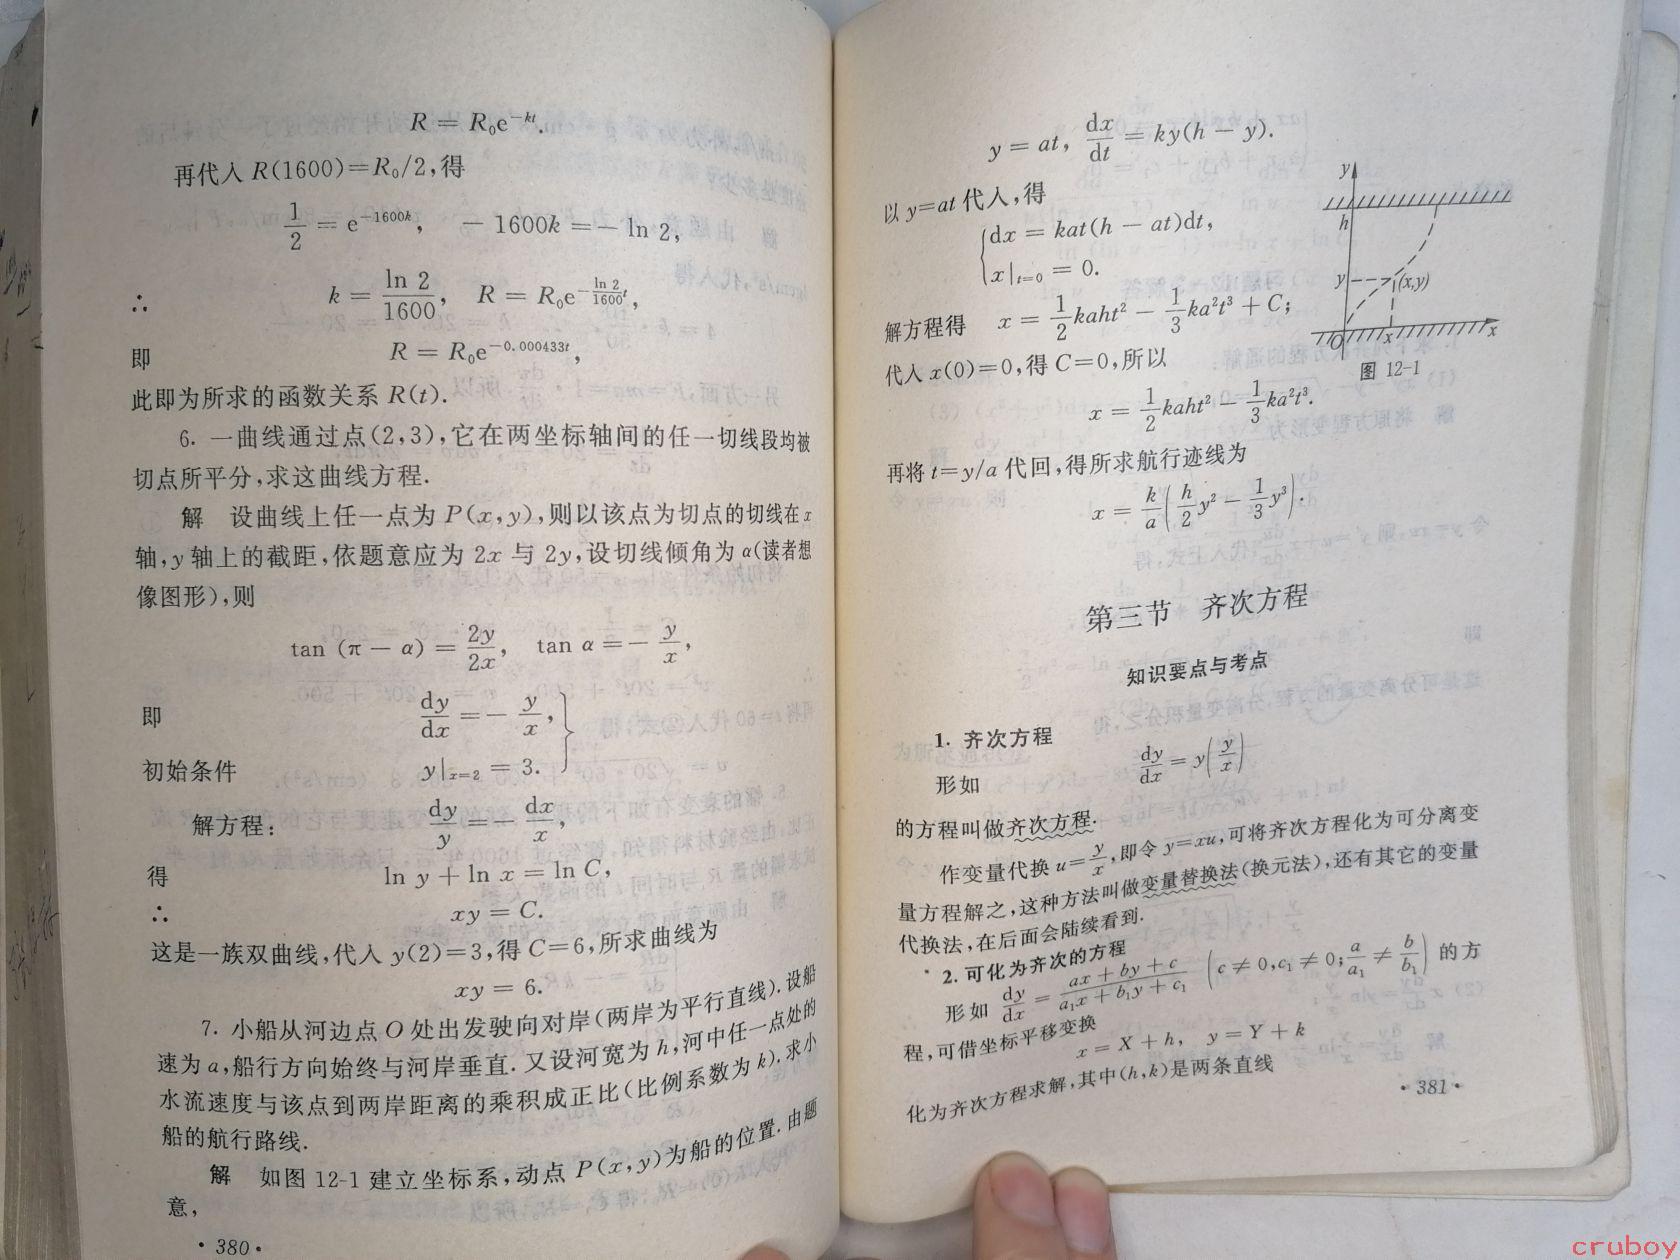 R = R₀e⁻ᵏᵗ.
再代入 R(1600)=R₀/2,得
1/2 = e^{-1600k}, -1600k = -ln 2,
∴ k = ln 2/1600, R = R₀e^{-(ln 2/1600)t},
即 R = R₀e^{-0.000433t},
此即为所求的函数关系 R(t).
6. 一曲线通过点(2,3),它在两坐标轴间的任一切线段均被
切点所平分,求这曲线方程.
解 设曲线上任一点为 P(x,y),则以该点为切点的切线在 x
轴,y 轴上的截距,依题意应为 2x 与 2y,设切线倾角为 α(读者想
像图形),则
tan (π - α) = 2y/2x, tan α = - y/x,
即 dy/dx = - y/x,
初始条件 y|_{x=2} = 3.
解方程: dy/y = - dx/x,
得 ln y + ln x = ln C,
∴ xy = C.
这是一族双曲线,代入 y(2)=3,得 C=6,所求曲线为
xy = 6.
7. 小船从河边点 O 处出发驶向对岸(两岸为平行直线).设船
速为 a,船行方向始终与河岸垂直.又设河宽为 h,河中任一点处的
水流速度与该点到两岸距离的乘积成正比(比例系数为 k).求小
船的航行路线.
解 如图 12-1 建立坐标系,动点 P(x,y)为船的位置.由题
意,
· 380 ·
y = at, dx/dt = ky(h - y).
以 y=at 代入,得
{dx = kat(h - at)dt,
x|_{t=0} = 0.
解方程得 x = 1/2 kaht² - 1/3 ka²t³ + C;
代入 x(0)=0,得 C=0,所以
x = 1/2 kaht² - 1/3 ka²t³.
y
h
y
(x,y)
O
x
x
图 12-1
再将 t=y/a 代回,得所求航行迹线为
x = k/a (h/2 y² - 1/3 y³).
第三节 齐次方程
知识要点与考点
1. 齐次方程
形如 dy/dx = y(y/x)
的方程叫做齐次方程.
作变量代换 u = y/x,即令 y=xu,可将齐次方程化为可分离变
量方程解之,这种方法叫做变量替换法(换元法),还有其它的变量
代换法,在后面会陆续看到.
2. 可化为齐次的方程
形如 dy/dx = (ax + by + c)/(a₁x + b₁y + c₁) (c ≠ 0,c₁ ≠ 0; a/a₁ ≠ b/b₁) 的方
程,可借坐标平移变换
x = X + h, y = Y + k
化为齐次方程求解,其中(h,k)是两条直线
· 381 ·
cruboy